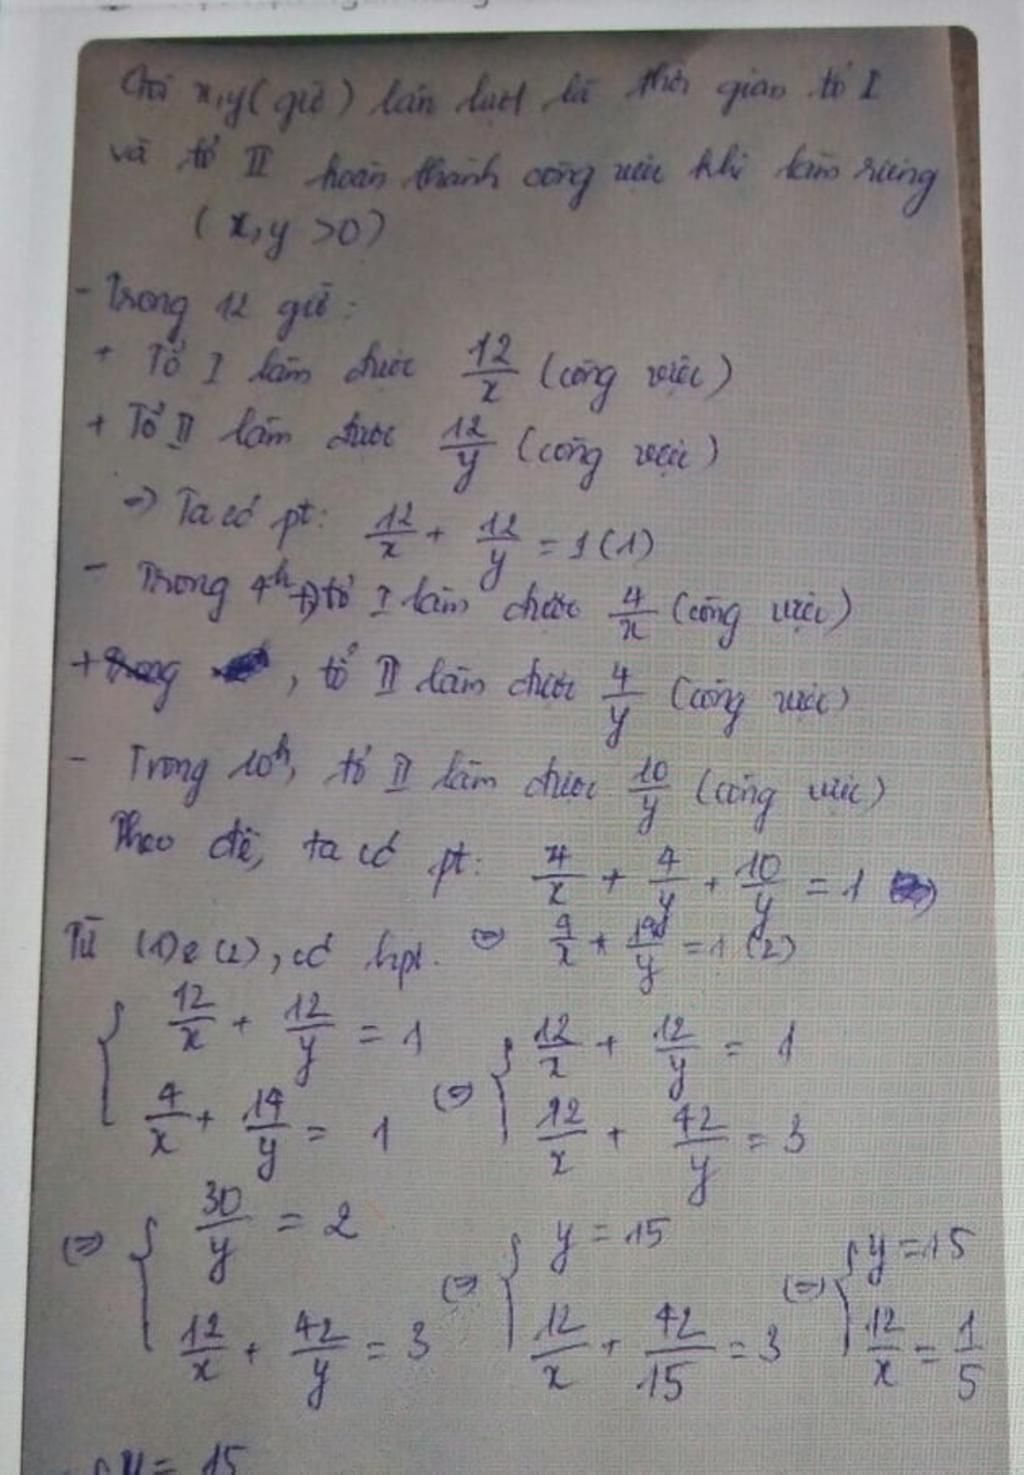 Gọi x,y (giờ) lần lượt là thời gian tổ I
và tổ II hoàn thành công việc khi làm riêng
(x,y >0)
- Trong 12 giờ:
+ Tổ I làm được 12/x (công việc)
+ Tổ II làm được 12/y (công việc)
=> Ta có pt: 12/x + 12/y = 1 (1)
- Trong 4h, tổ I làm được 4/x (công việc)
+ , tổ II làm được 4/y (công việc)
- Trong 10h, tổ II làm được 10/y (công việc)
Theo đề, ta có pt: 4/x + 4/y + 10/y = 1
Từ (1) & (2), có hpt. (=) 4/x + 14/y = 1 (2)
{ 12/x + 12/y = 1 (=) { 12/x + 12/y = 1
4/x + 14/y = 1 12/x + 42/y = 3
(=) { 30/y = 2 (=) { y = 15 (=) { y = 15
12/x + 42/y = 3 12/x + 42/15 = 3 12/x = 1/5
{ y = 15